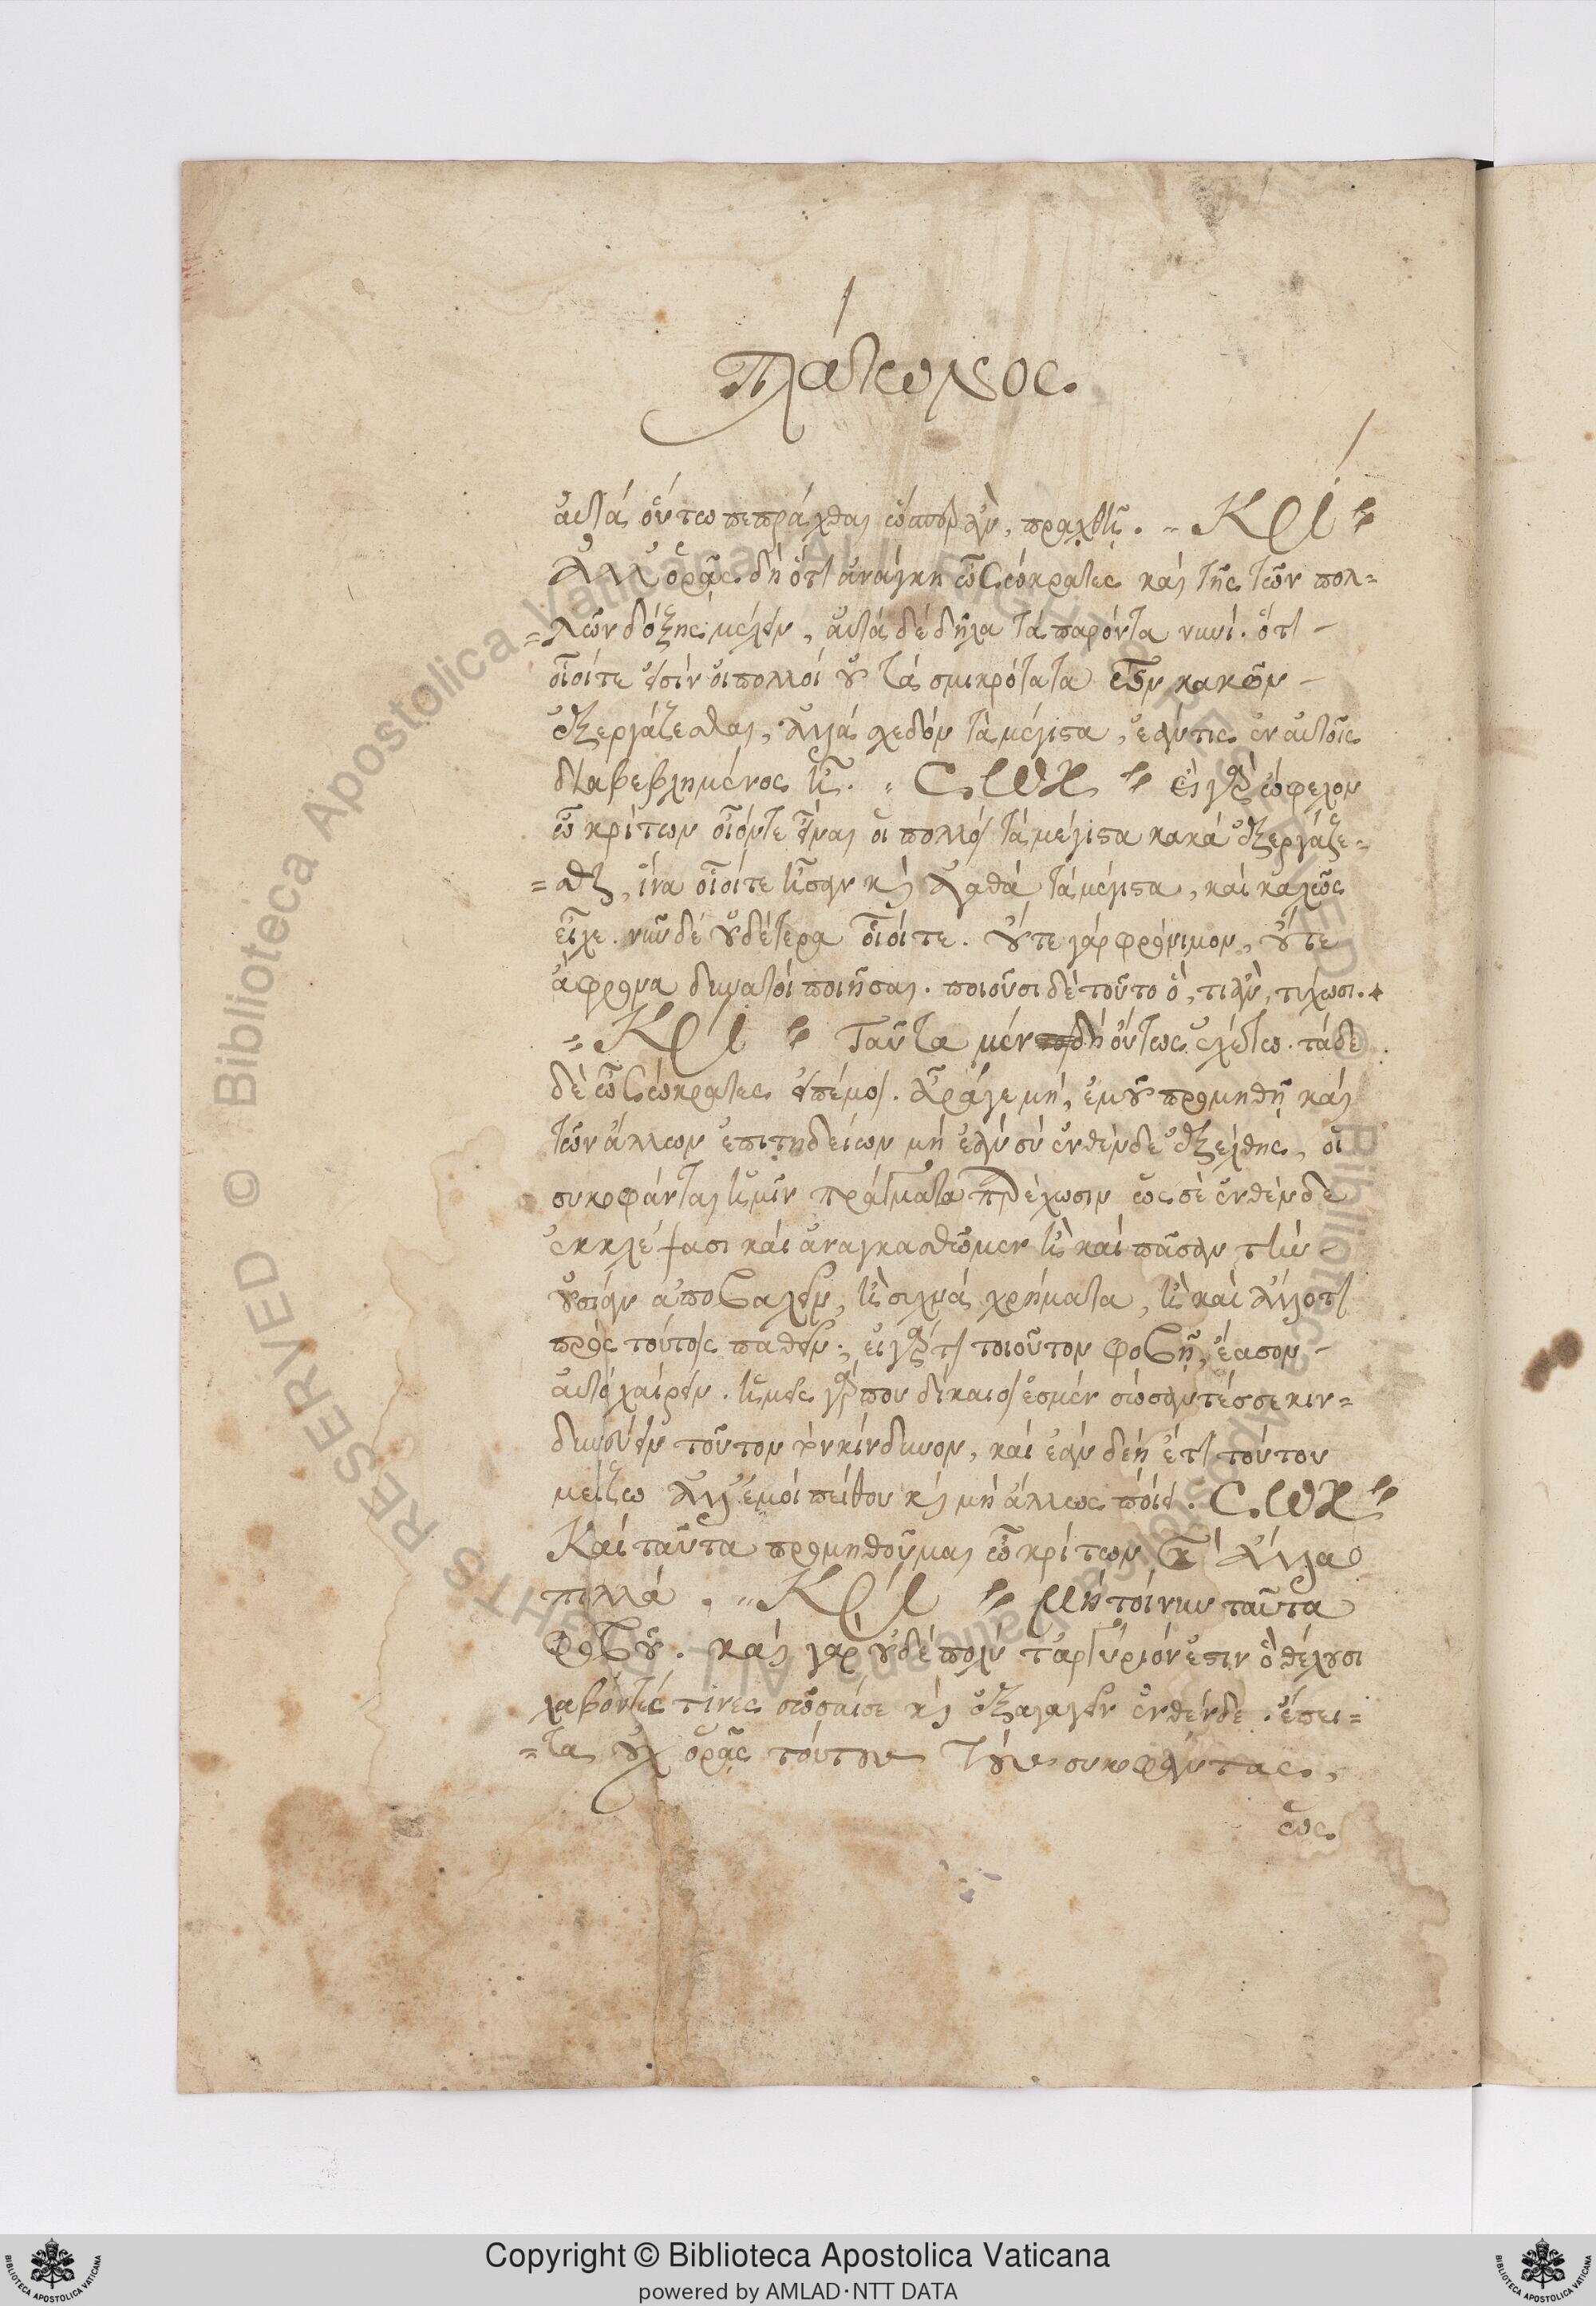 Πλάτωνος.
ἀυτά ὅυτω πεπράχθαι ὥσπερ ἂν, πραχθῇ. „ Κρί
Ἀλλ' ὁρᾷς δή ὅτι ἀνάγκη ὦ Σώκρατες καί τῆς τῶν πολ=
=λῶν δόξης μέλειν, ἀυτά δέ δῆλα τά παρόντα νυνί. ὅτι
οἷοίτε εἰσίν ὁιπολλοί οὐ τά σμικρότατα τῶν κακῶν
ἐξεργάζεσθαι, ἀλλά σχεδόν τά μέγιστα, ἐάντις ἐν ἀυτοῖς
διαβεβλημένος ᾖ. „ Σωκ εἰ γὰρ ὤφελον
ὦ κρίτων οἷόντε εἶναι ὁι πολλοί τά μέγιστα κακά ἐξεργάζε=
=σθαι, ἵνα οἷοίτε ἦσαν καὶ ἀγαθά τά μέγιστα, καί καλῶς
εἶχε. νῦν δέ οὐδέτερα οἷοίτε. οὔτε γάρ φρόνιμον, οὔτε
ἄφρονα δυνατόι ποιῆσαι. ποιοῦσι δέ τοῦτο ὅ,τι ἂν, τύχωσι.
„ Κρί Ταῦτα μέν δή ὅυτως ἐχέτω. τάδε
δέ ὦ Σώκρατες εἰπέ μοι. ἆράγε μή, ἐμοῦ προμηθῇ καί
τῶν ἄλλων ἐπιτηδείων μή ἐάν σύ ἐνθένδε ἐξέλθῃς, οἱ
συκοφάνται ἡμῖν πράγματα παρέχωσιν ὡς σέ ἐνθένδε
ἐκκλέψασι καί ἀναγκασθῶμεν ἢ καί πᾶσαν τήν
οὐσίαν ἀποβαλεῖν, ἢ συχνά χρήματα, ἢ καὶ ἄλλοτι
πρός τούτοις παθεῖν; εἰ γάρ τι τοιοῦτον φοβῇ, ἔασον
ἀυτό χαίρειν. ἡμεῖς γάρ που δίκαιοί ἐσμέν σώσαντές σε κιν=
δυνεύειν τοῦτον τόν κίνδυνον, καί ἐάν δέῃ ἔτι τούτου
μείζω ἀλλ' ἐμοί πείθου καὶ μή ἄλλως ποίει. Σωκ
Καί ταῦτα προμηθοῦμαι ὦ κρίτων καὶ ἄλλα
πολλά. „ Κρί Μή τοίνυν ταῦτα
Φοβοῦ. καί γάρ οὐδέ πολύ τἀργύριόν ἐστιν ὃ θέλουσι
λαβόντές τινες σῶσαί σε καὶ ἐξαγαγεῖν ἐνθένδε. ἔπει=
=τα οὐχ ὁρᾷς τούτους τούς συκοφάντας,
ὡς
Copyright © Biblioteca Apostolica Vaticana
powered by AMLAD·NTT DATA